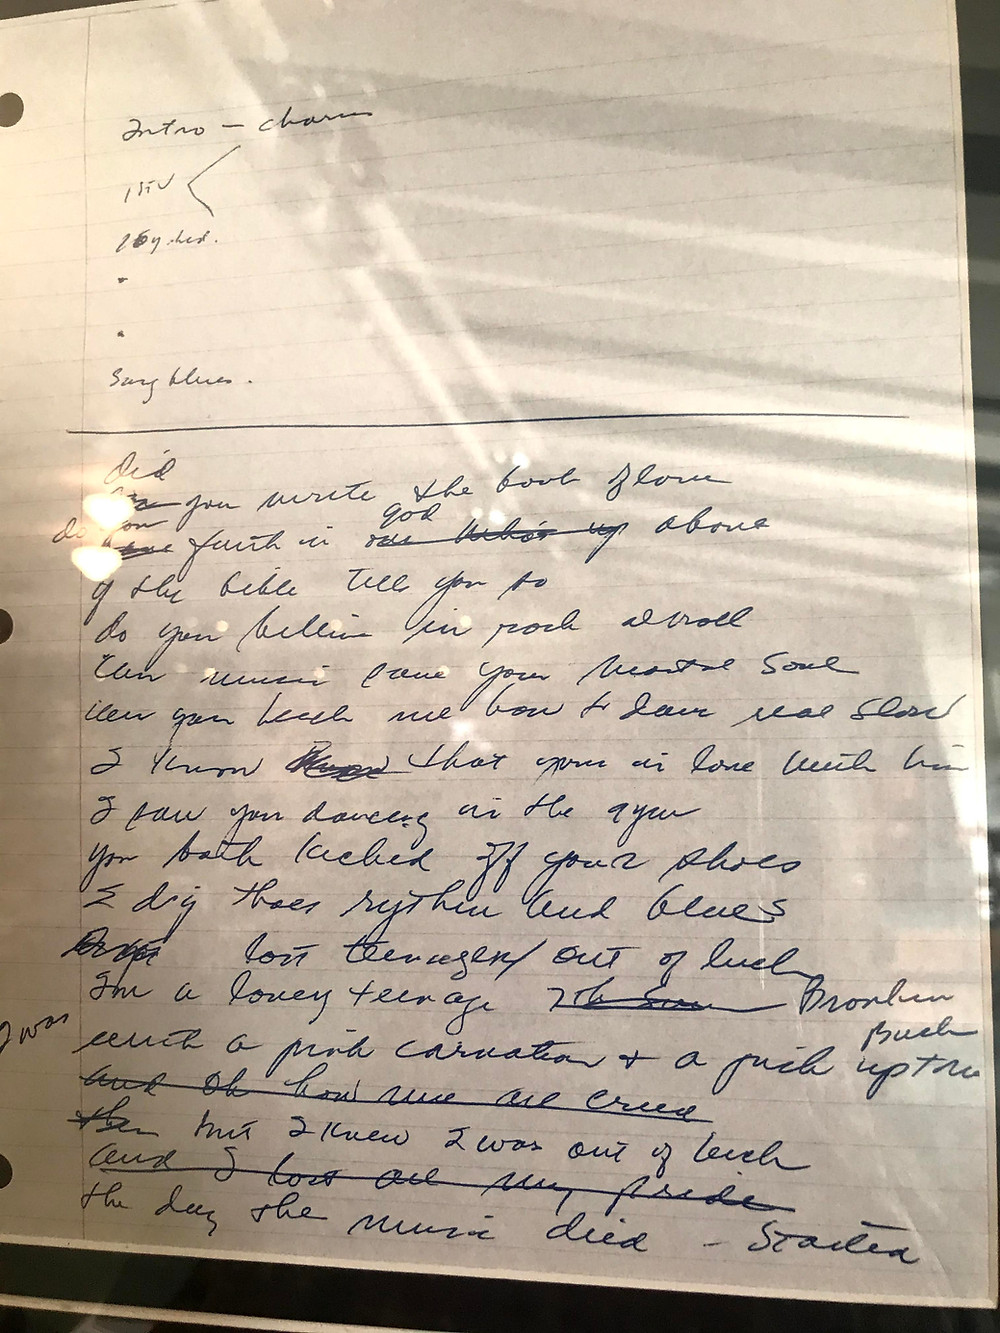 Intro – chorus
1st V
Psyched.
Sang blues.
Did
you write the book of love
do you god
have faith in one who's up above
if the bible tell you so
do you believe in rock & roll
can music save your mortal soul
can you teach me how to dance real slow
I know that your in love with him
I saw you dancing in the gym
you both kicked off your shoes
I dig thoes rythm and blues
lost teenager/ out of luck
I'm a loney teenage Bronken
I was Buck
with a pink carnation & a pick up tru
and oh how we all cried
then but I knew I was out of luck
and I lost all my pride
the day the music died – Started